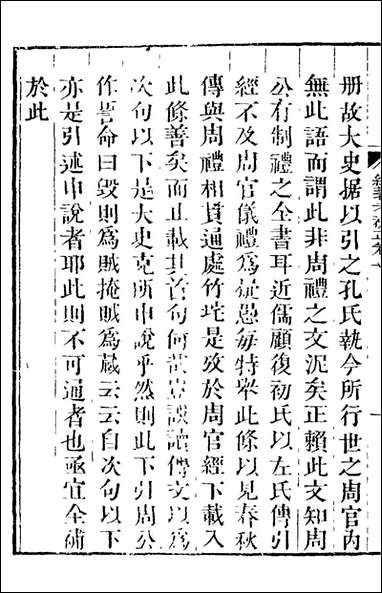 册故大史据以引之孔氏執今所行世之周官內
無此語而謂此非周禮之文泥矣正賴此文知周
公有制禮之全書耳近儒顧復初氏以左氏傳引
經不及周官儀禮爲疑愚每特舉此條以見春秋
傳與周禮相貫通處竹垞是攷於周官經下載入
此條善矣而止載其首句何哉豈誤讀傳文以爲
次句以下是大史克所申說乎然則此下引周公
作誓命曰毀則爲賊掩賊爲藏云云自次句以下
亦是引述申說者耶此則不可通者也亟宜全補
於此